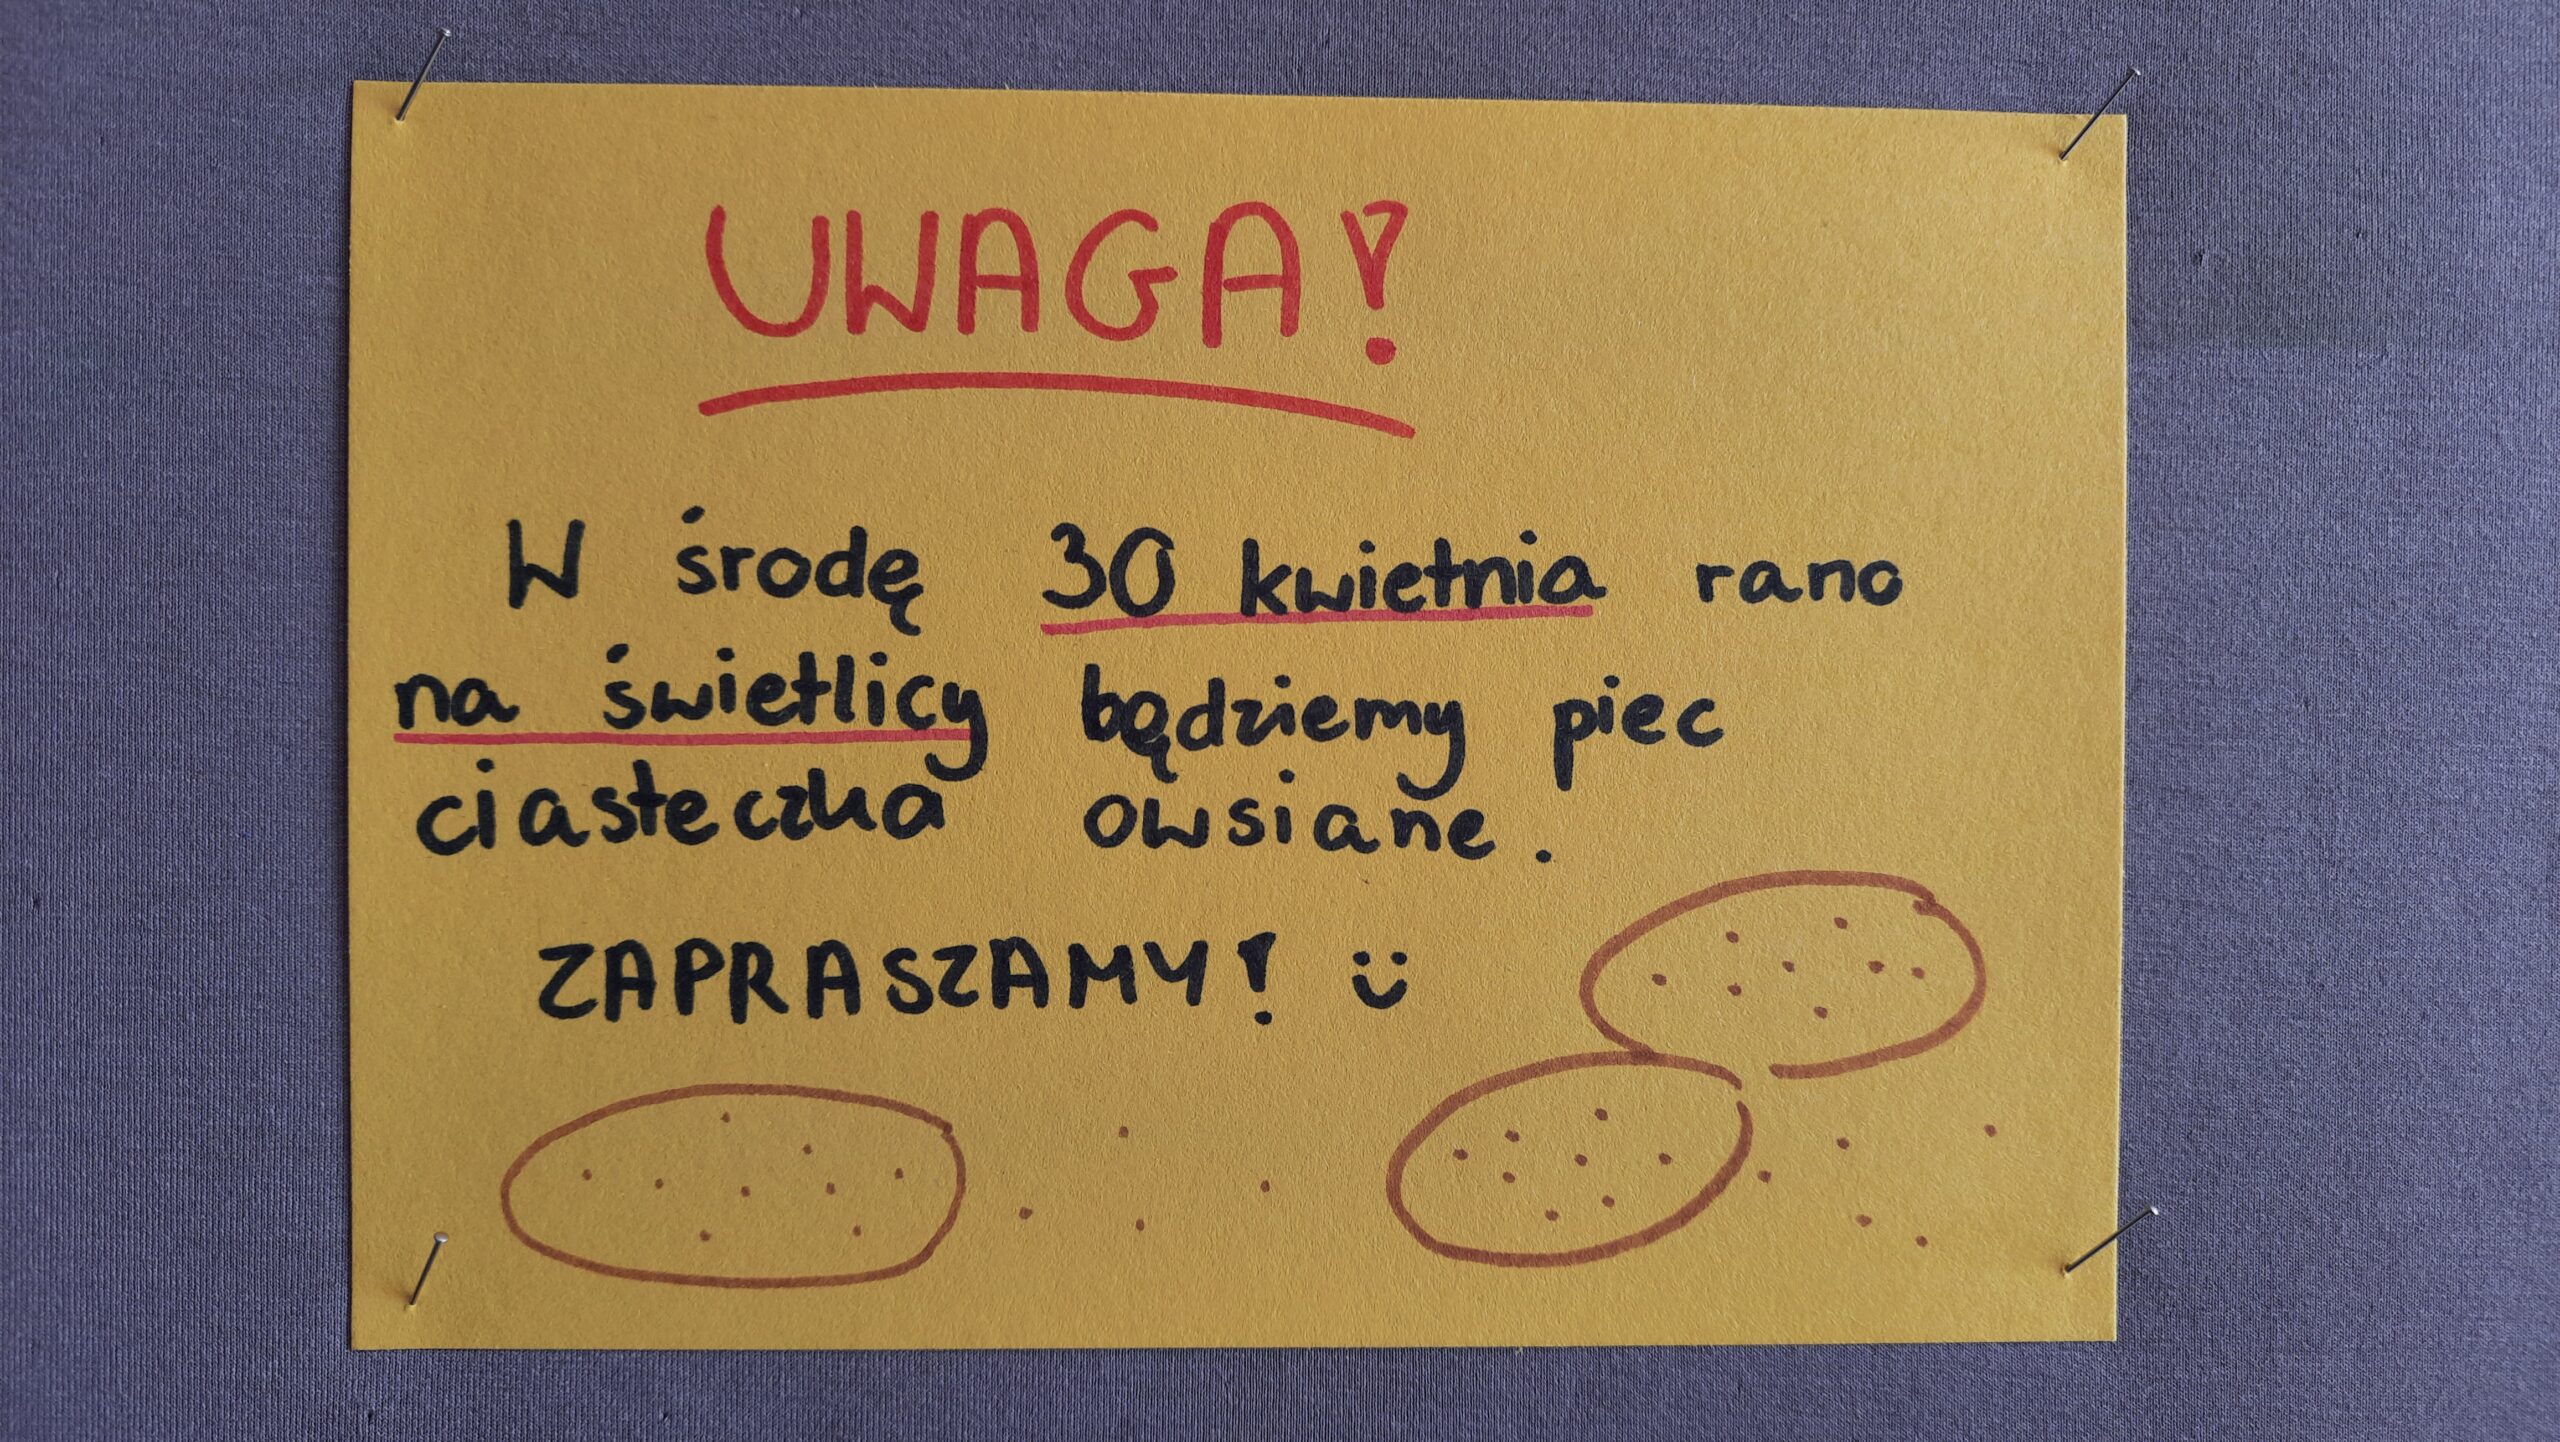 UWAGA!
W środę 30 kwietnia rano
na świetlicy będziemy piec
ciasteczka owsiane.
ZAPRASZAMY! ü